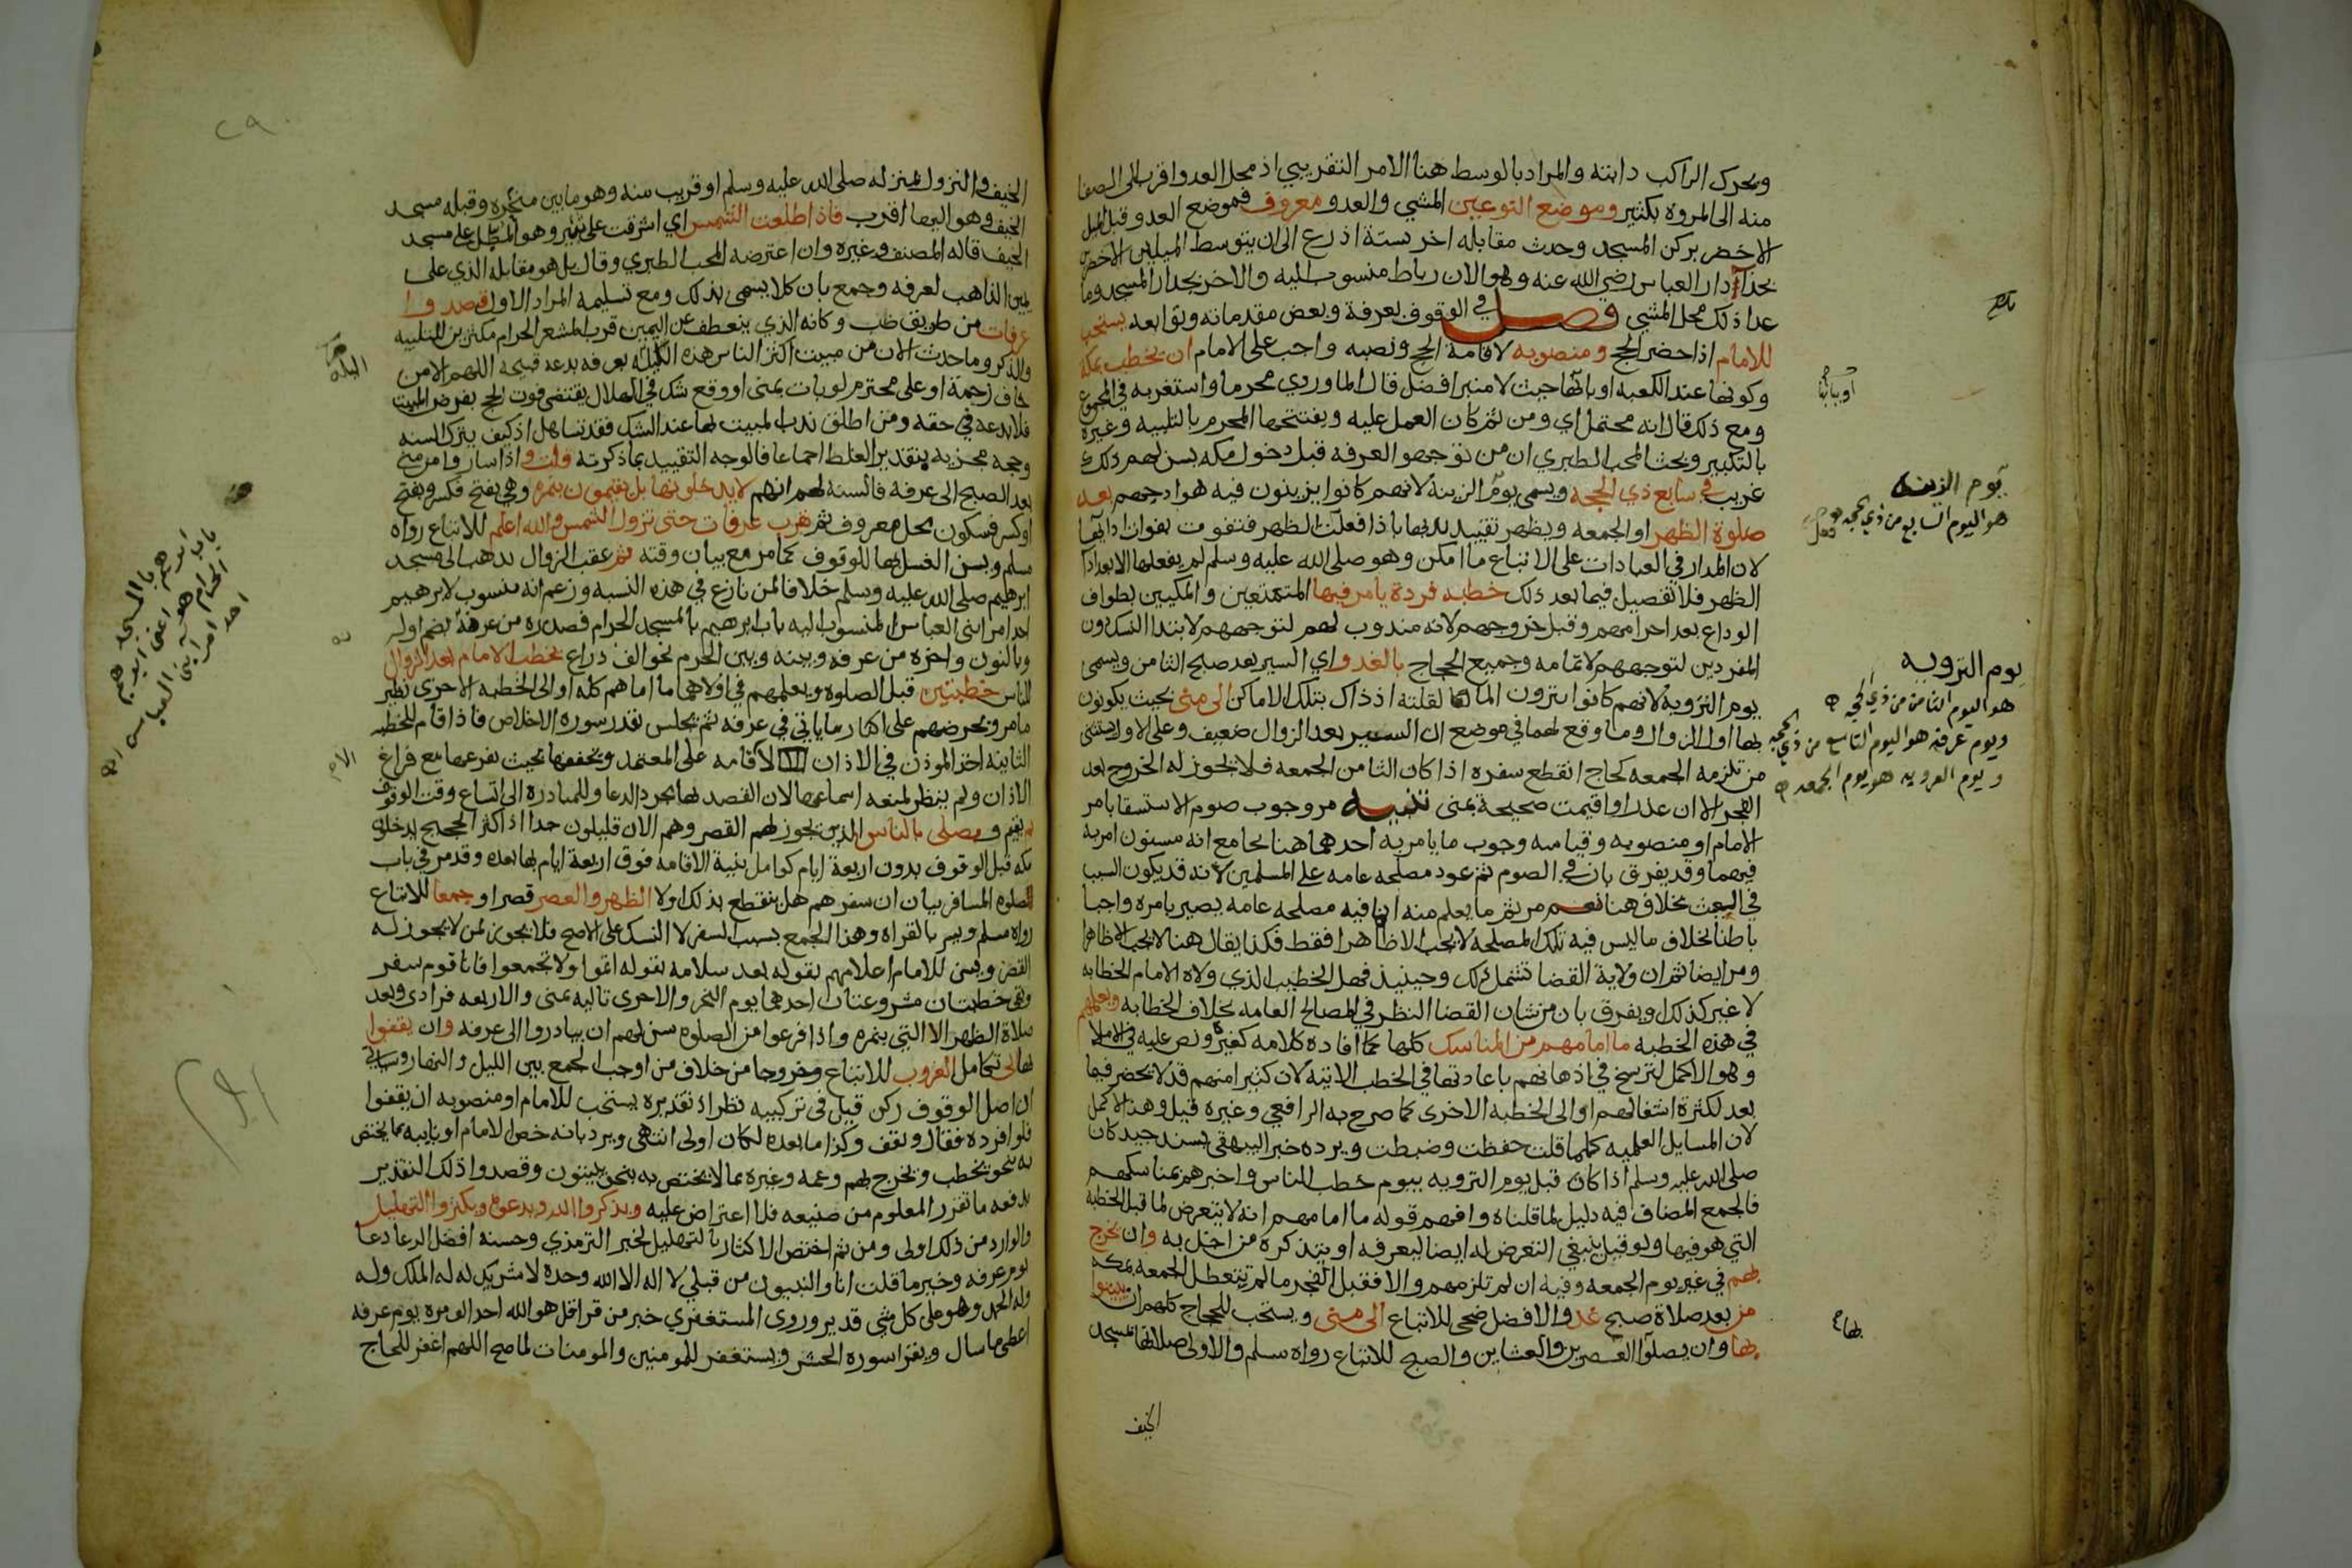 ويحرك الراكب دابته والمراد بالوسط هنا الامر التقريبي اذ محل العدو اقرب الى الصفا
منه الى المروة بكثير وموضع النوعين المشي والعدو معروف فموضع العدو قبل الميل
الاخضر بركن المسجد وحدث مقابله اخر بستة اذرع الى ان يتوسط الميلين الاخضرين
بحذاء دار العباس رضي الله عنه وهو الان رباط منسوب اليه والاخر بجدار المسجد وما
عدا ذلك محل المشي فصل في الوقوف بعرفة وبعض مقدماته وتوابعه يستحب
للامام اذا حضر الحج ومنصوبه لاقامة الحج ونصبه واجب على الامام ان يخطب بمكة
وكونها عند الكعبه او بابها حيث لا منبر افضل قال الماوردي محرما واستغربه في المجموع
ومع ذلك قال انه محتمل اي ومن ثم كان العمل عليه ويفتتحها المحرم بالتلبيه وغيره
بالتكبير وبحث المحب الطبري ان من توجهوا لعرفه قبل دخول مكه يسن لهم ذلك
غريب في سابع ذي الحجه ويسمى يوم الزينة لانهم كانوا يزينون فيه هوادجهم بعد
صلوة الظهر او الجمعه ويظهر تقييد ندبها باذا فعلت الظهر فتفوت بفوات ادائها
لان المدار في العبادات على الاتباع ما امكن وهو صلى الله عليه وسلم لم يفعلها الا بعد اداء
الظهر فلا تفصيل فيما بعد ذلك خطبه فردة يامر فيها المتمتعين والمكيين بطواف
الوداع بعد احرامهم وقبل خروجهم لانه مندوب لهم لتوجههم لابتدا النسك دون
المفردين لتوجههم لاتمامه وجميع الحجاج بالغدو اي السير بعد صبح الثامن ويسمى
يوم التروية لانهم كانوا يتروون الما لقلته اذ ذاك بتلك الاماكن الى منى بحيث يكونون
بها اول الزوال وما وقع لهما في موضع ان السير بعد الزوال ضعيف وعلى الاول يستثنى
من تلزمه الجمعه كحاج انقطع سفره اذا كان الثامن الجمعه فلا يجوز له الخروج بعد
الفجر الا ان عذر او اقيمت صحيحة بمنى تنبيه مر وجوب صوم الاستسقا بامر
الامام او منصوبه وقياسه وجوب ما يامر به احدهما هنا بجامع انه مسنون امر به
فيهما وقد يفرق بان في الصوم ثم عود مصلحه عامه على المسلمين لانه قد يكون السبب
في الغيث بخلاف هنا نعم مر ثم ما يعلم منه ان ما فيه مصلحه عامه يصير بامره واجبا
باطنا بخلاف ما ليس فيه تلك المصلحه لا يجب الا ظاهرا فقط فكذا يقال هنا لا يجب الا ظاهرا
ومر ايضا ثم ان ولاية القضا تشمل ذلك وحينيذ فهل الخطيب الذي ولاه الامام الخطابه
لا غير كذلك او يفرق بان من شان القضا النظر في المصالح العامه بخلاف الخطابه ويعلمهم
في هذه الخطبه ما امامهم من المناسك كلها كما افاده كلامه كغيره ونص عليه في الاملا
وهو الاكمل لترسخ في اذهانهم باعادتها في الخطب الاتية لان كثيرا منهم قد لا يحضر فيما
بعد لكثرة اشغالهم او الى الخطبه الاخرى كما صرح به الرافعي وغيره قيل وهذا الاكمل
لان المسايل العلميه كلما قلت حفظت وضبطت ويرده خبر البيهقي بسند جيد كان
صلى الله عليه وسلم اذا كان قبل يوم الترويه بيوم خطب الناس واخبرهم بمناسكهم
فالجمع المضاف فيه دليل لما قلناه وافهم قوله ما امامهم انه لا يتعرض لما قبل الخطبه
التي هو فيها ولو قيل ينبغي التعرض له ايضا ليعرفه او يتذكره من اخل به وان يخرج
بهم في غير يوم الجمعه وفيه ان لم تلزمهم والا فقبل الفجر ما لم تتعطل الجمعه بمكه
من بعد صلاة صبح غد والافضل ضحى للاتباع الى منى ويستحب للحجاج كلهم ان يبيتوا
بها وان يصلوا العصرين والعشاين والصبح للاتباع رواه مسلم والاولى صلاتها بمسجد
الخيف
او بابها
يوم الزينه
هو اليوم السابع من ذي الحجه
يوم الترويه
هو اليوم الثامن من ذي الحجه
ويوم عرفة هو اليوم التاسع من ذي الحجه
ويوم العروبه هو يوم الجمعه
بها
٢٩
الخيف والنزول بمنزله صلى الله عليه وسلم او قريب منه وهو ما بين منحره وقبله مسجد
الخيف وهو اليها اقرب فاذا طلعت الشمس اي اشرقت على ثبير وهو المطل على مسجد
الخيف قاله المصنف وغيره وان اعترضه المحب الطبري وقال بل هو مقابله الذي على
يمين الذاهب لعرفه وجمع بان كلا يسمى بذلك ومع تسليمه المراد الاول قصدوا
عرفات من طريق ضب وكانه الذي ينعطف عن اليمين قرب المشعر الحرام مكثرين للتلبيه
والذكر وما حدث الان من مبيت اكثر الناس هذه الليله بعرفه بدعه قبيحه اللهم الا من
خاف زحمة او على محترم لو بات بمنى او وقع شك في الهلال يقتضي فوت الحج بفرض المبيت
فلا بدعه في حقه ومن اطلق ندب المبيت بها عند الشك فقد تساهل اذ كيف يترك السنه
وحجه مجزيه بتقدير الغلط اجماعا فالوجه التقييد بما ذكرته واذا سار وامر مني
بعد الصبح الى عرفة فالسنه لهم انهم لا يدخلونها بل يقيمون بنمره وهي بفتح فكسر وبفتح
او كسر فسكون محل معروف ثم بقرب عرفات حتى تزول الشمس والله اعلم للاتباع رواه
مسلم ويسن الغسل بها للوقوف كما مر مع بيان وقته ثم عقب الزوال يذهب الى مسجد
ابرهيم صلى الله عليه وسلم خلافا لمن نازع في هذه النسبه وزعم انه منسوب لابرهيم
احد امرا بني العباس المنسوب اليه باب ابرهيم بالمسجد الحرام فصدره من عرنة بضم اوله
وبالنون واخره من عرفه وبينه وبين الحرم نحو الف ذراع يخطب الامام بعد الزوال
للناس خطبتين قبل الصلوة ويعلمهم في اولاهما ما امامهم كله او الى الخطبه الاخرى نظير
ما مر ويحرضهم على اكثار ما ياتي في عرفه ثم يجلس بقدر سورة الاخلاص فاذا قام للخطبه
الثانية اخذ الموذن في الاذان لا الاقامه على المعتمد ويخففها بحيث يفرغها مع فراغ
الاذان ولم ينظر لمنعه اسماعها لان القصد بها مجرد الدعا وللمبادرة الى اتساع وقت الوقوف
ثم يقيم ويصلي بالناس الذين يجوز لهم القصر وهم الان قليلون جدا اذ اكثر الحجيج يدخلون
مكه قبل الوقوف بدون اربعة ايام كوامل بنية الاقامه فوق اربعة ايام بها بعده وقد مر في باب
صلوة المسافر بيان ان سفرهم هل ينقطع بذلك اولا الظهر والعصر قصرا وجمعا للاتباع
رواه مسلم ويسر بالقراه وهذا الجمع بسبب السفر لا النسك على الاصح فلا يجوز لمن لا يجوز له
القصر ويسن للامام اعلامهم بقوله بعد سلامه بقوله اتموا ولا تجمعوا فانا قوم سفر
وبقي خطبتان مشروعتان احدهما يوم النحر والاخرى تاليه بمنى والاربعه فرادى وبعد
صلاة الظهر الا التي بنمره واذا فرغوا من الصلوه سن لهم ان يبادروا الى عرفه وان يقفوا
بها الى تكامل الغروب للاتباع وخروجا من خلاف من اوجب الجمع بين الليل والنهار وسياتي
ان اصل الوقوف ركن قيل في تركيبه نظر اذ تقديره يستحب للامام او منصوبه ان يقفوا
فلو افرده فقال ويقف وكذا ما بعده لكان اولى انتهى ويرد بانه خص الامام او نايبه بما يختص
به نحو يخطب ويخرج بهم وعمه وغيره بما لا يختص به نحو يبيتون وقصدوا ذلك التقدير
يدفعه ما تقرر المعلوم من صنيعه فلا اعتراض عليه ويذكروا الله ويدعوه ويكثروا التهليل
والوارد من ذلك اولى ومن ثم اختص الاكثار بالتهليل لخبر الترمذي وحسنه افضل الدعا دعا
يوم عرفه وخير ما قلت انا والنبيون من قبلي لا اله الا الله وحده لا شريك له له الملك وله
وله الحمد وهو على كل شي قدير وروى المستغفري خبر من قرا قل هو الله احد الف مره يوم عرفه
اعطي ما سال ويقرا سورة الحشر ويستغفر للمومنين والمومنات لما صح اللهم اغفر للحاج
الليله